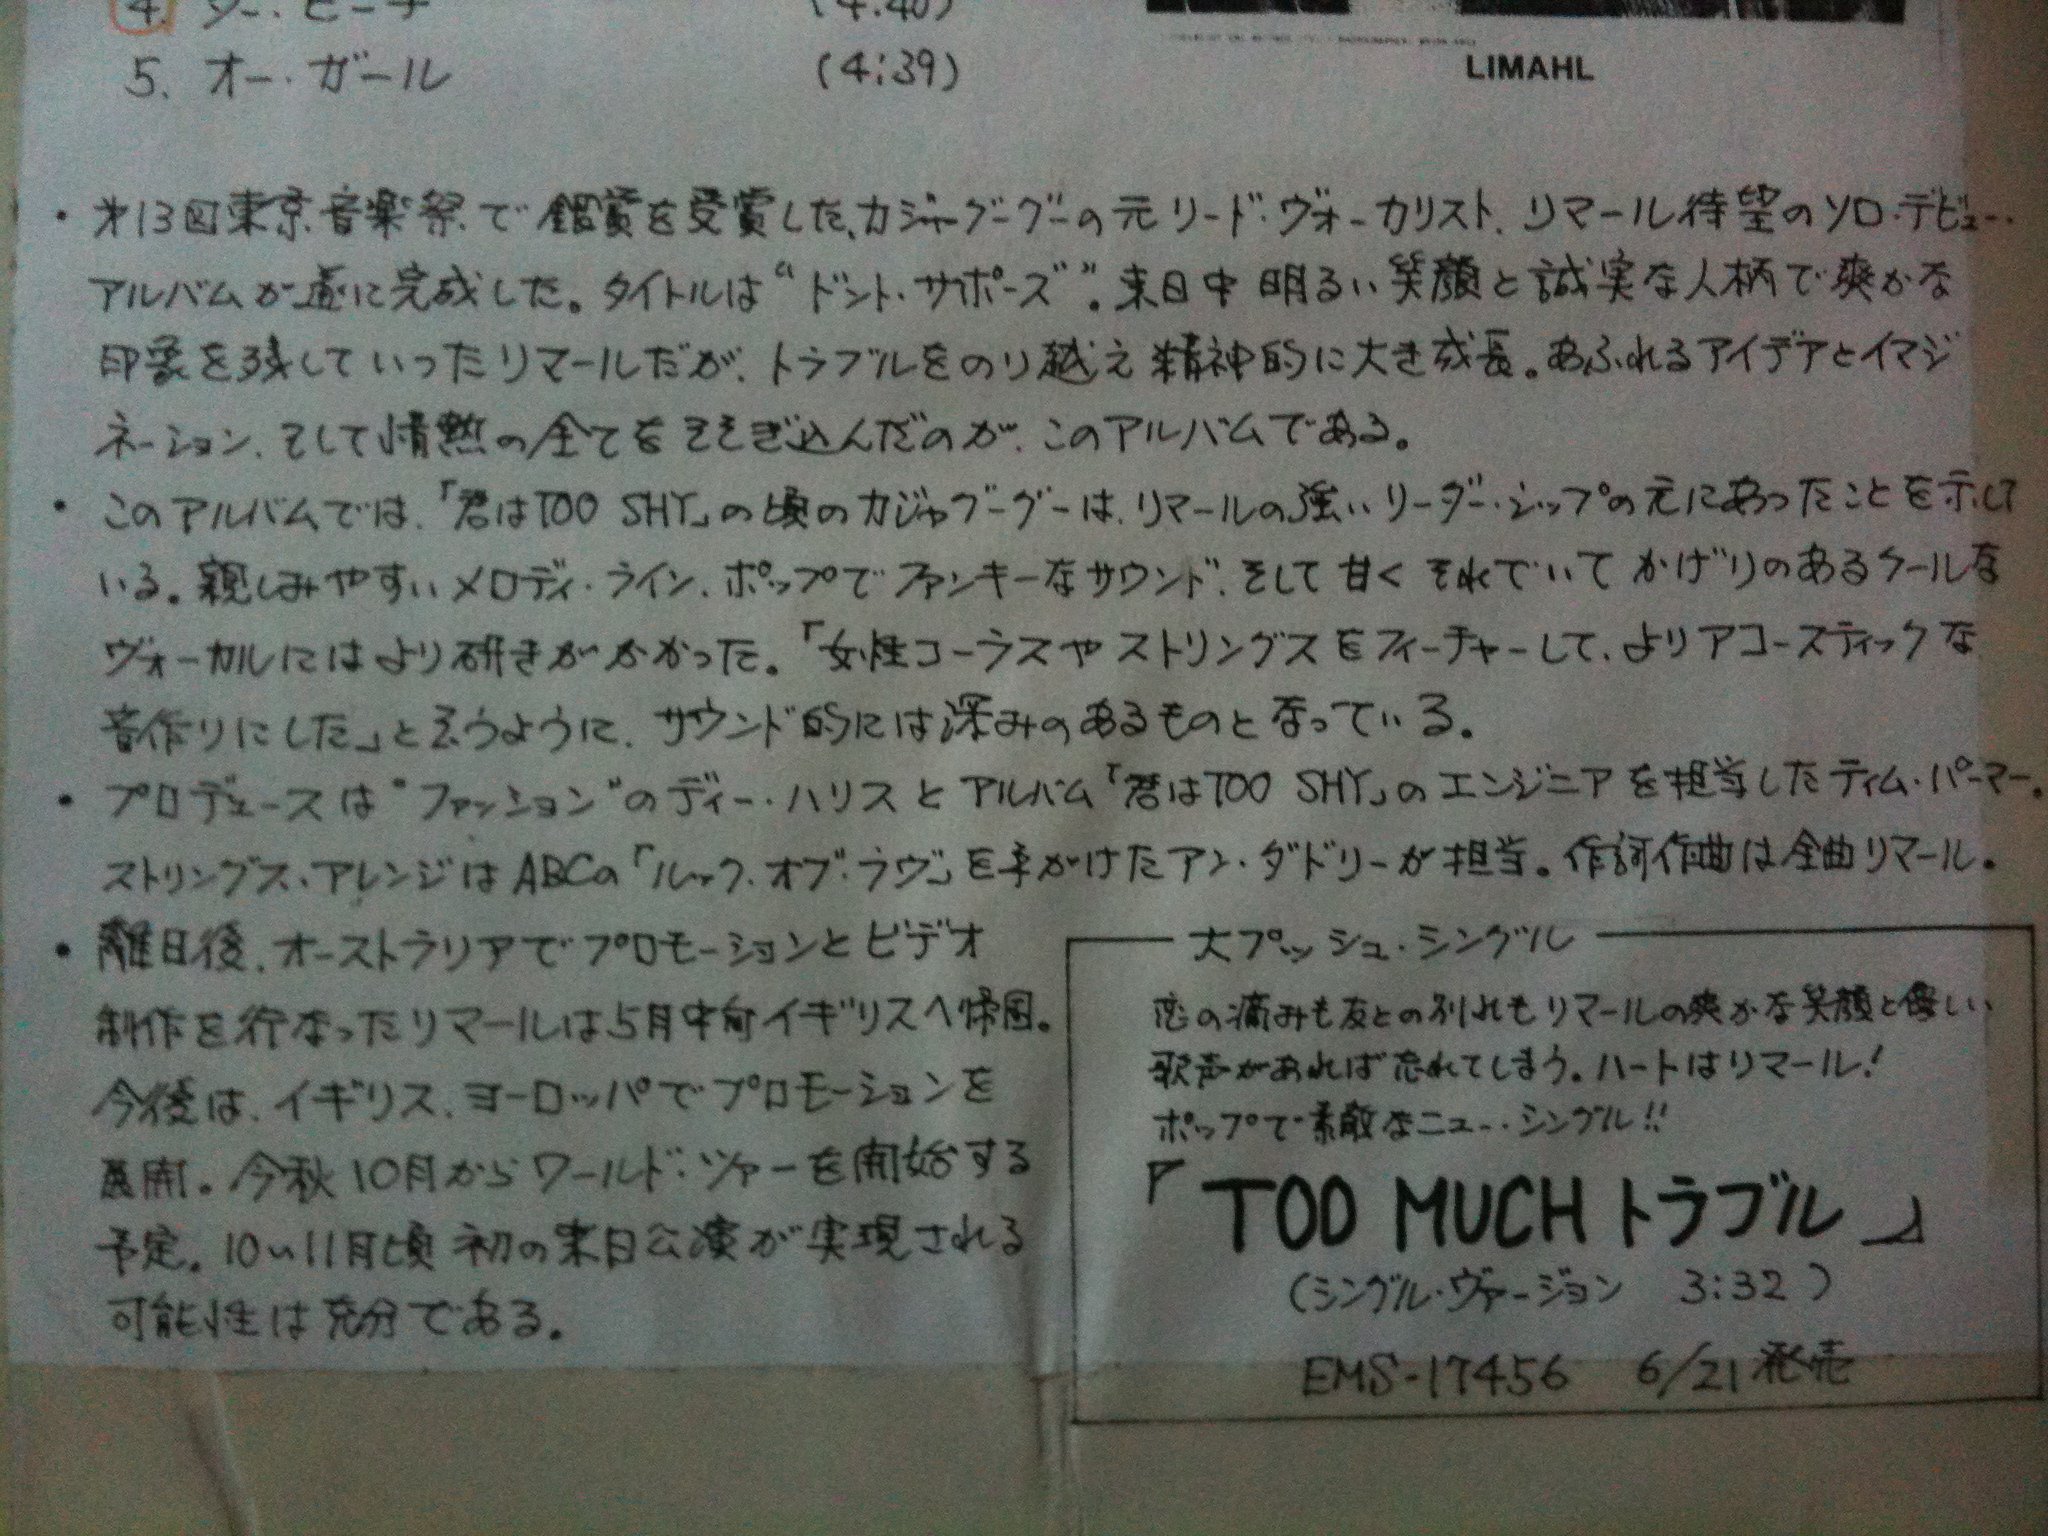 5. オー・ガール (4:39)
LIMAHL
・ 才13回東京音楽祭で鑑賞を受賞した、カジャグーグーの元リード・ヴォーカリスト、リマール待望のソロ・デビュー・
アルバムが遂に完成した。タイトルは“ドント・サポーズ”。来日中明るい笑顔と誠実な人柄で爽かな
印象を残していったリマールだが、トラブルをのり越え精神的に大き成長。あふれるアイデアとイマジ
ネーション、そして情熱の全てをそそぎ込んだのが、このアルバムである。
・ このアルバムでは、「君はTOO SHY」の頃のカジャグーグーは、リマールの強いリーダー・シップの元にあったことを示して
いる。親しみやすいメロディ・ライン、ポップでファンキーなサウンド、そして甘くそれでいてかげりのあるクールな
ヴォーカルにはより研きがかかった。「女性コーラスやストリングスをフィーチャーして、よりアコースティックな
音作りにした」と言うように、サウンド的には深みのあるものとなっている。
・ プロデュースは“ファッション”のディー・ハリスとアルバム「君はTOO SHY」のエンジニアを担当したティム・パーマー。
ストリングス・アレンジはABCの「ルック・オブ・ラヴ」を手がけたアン・ダドリーが担当。作詞作曲は全曲リマール。
・ 離日後、オーストラリアでプロモーションとビデオ
制作を行なったリマールは5月中旬イギリスへ帰国。
今後は、イギリス、ヨーロッパでプロモーションを
展開。今秋10月からワールド・ツァーを開始する
予定。10〜11月頃初の来日公演が実現される
可能性は充分である。
大プッシュ・シングル
恋の痛みも友との別れもリマールの爽かな笑顔と優しい
歌声があれば忘れてしまう。ハートはリマール!
ポップで素敵なニュー・シングル!!
「TOO MUCH トラブル」
(シングル・ヴァージョン 3:32)
EMS-17456 6/21発売